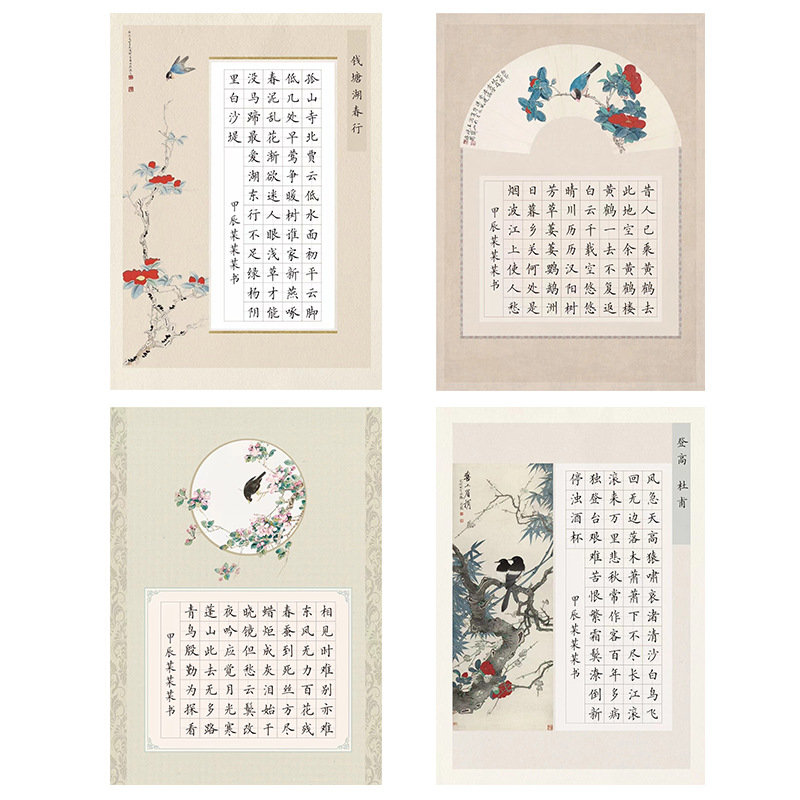 钱塘湖春行
孤山寺北贾云低水面初平云脚
低几处早莺争暖树谁家新燕啄
春泥乱花渐欲迷人眼浅草才能
没马蹄最爱湖东行不足绿杨阴
里白沙堤
甲辰某某某书
昔人已乘黄鹤去
此地空余黄鹤楼
黄鹤一去不复返
白云千载空悠悠
晴川历历汉阳树
芳草萋萋鹦鹉洲
日暮乡关何处是
烟波江上使人愁
甲辰某某某书
相见时难别亦难
东风无力百花残
春蚕到死丝方尽
蜡炬成灰泪始干
晓镜但愁云鬓改
夜吟应觉月光寒
蓬山此去无多路
青鸟殷勤为探看
甲辰某某某书
登高 杜甫
风急天高猿啸哀渚清沙白鸟飞
回无边落木萧萧下不尽长江滚
滚来万里悲秋常作客百年多病
独登台艰难苦恨繁霜鬓潦倒新
停浊酒杯
甲辰某某某书